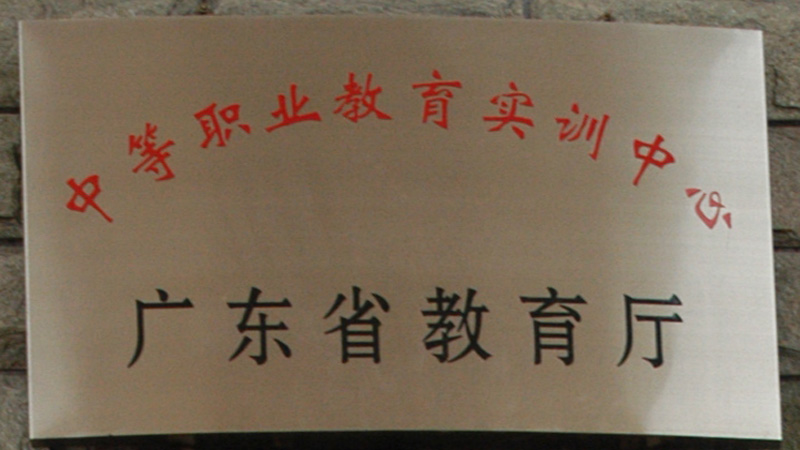 中等职业教育实训中心
广东省教育厅